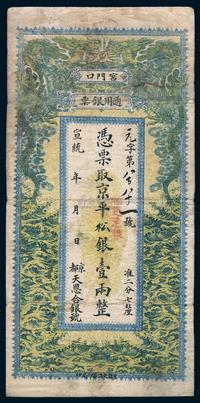 宮門口
通用銀票
元字第 號
憑票取京平松銀壹兩整
宣統 年 月 日
准二分七厘
京都天恩合銀號